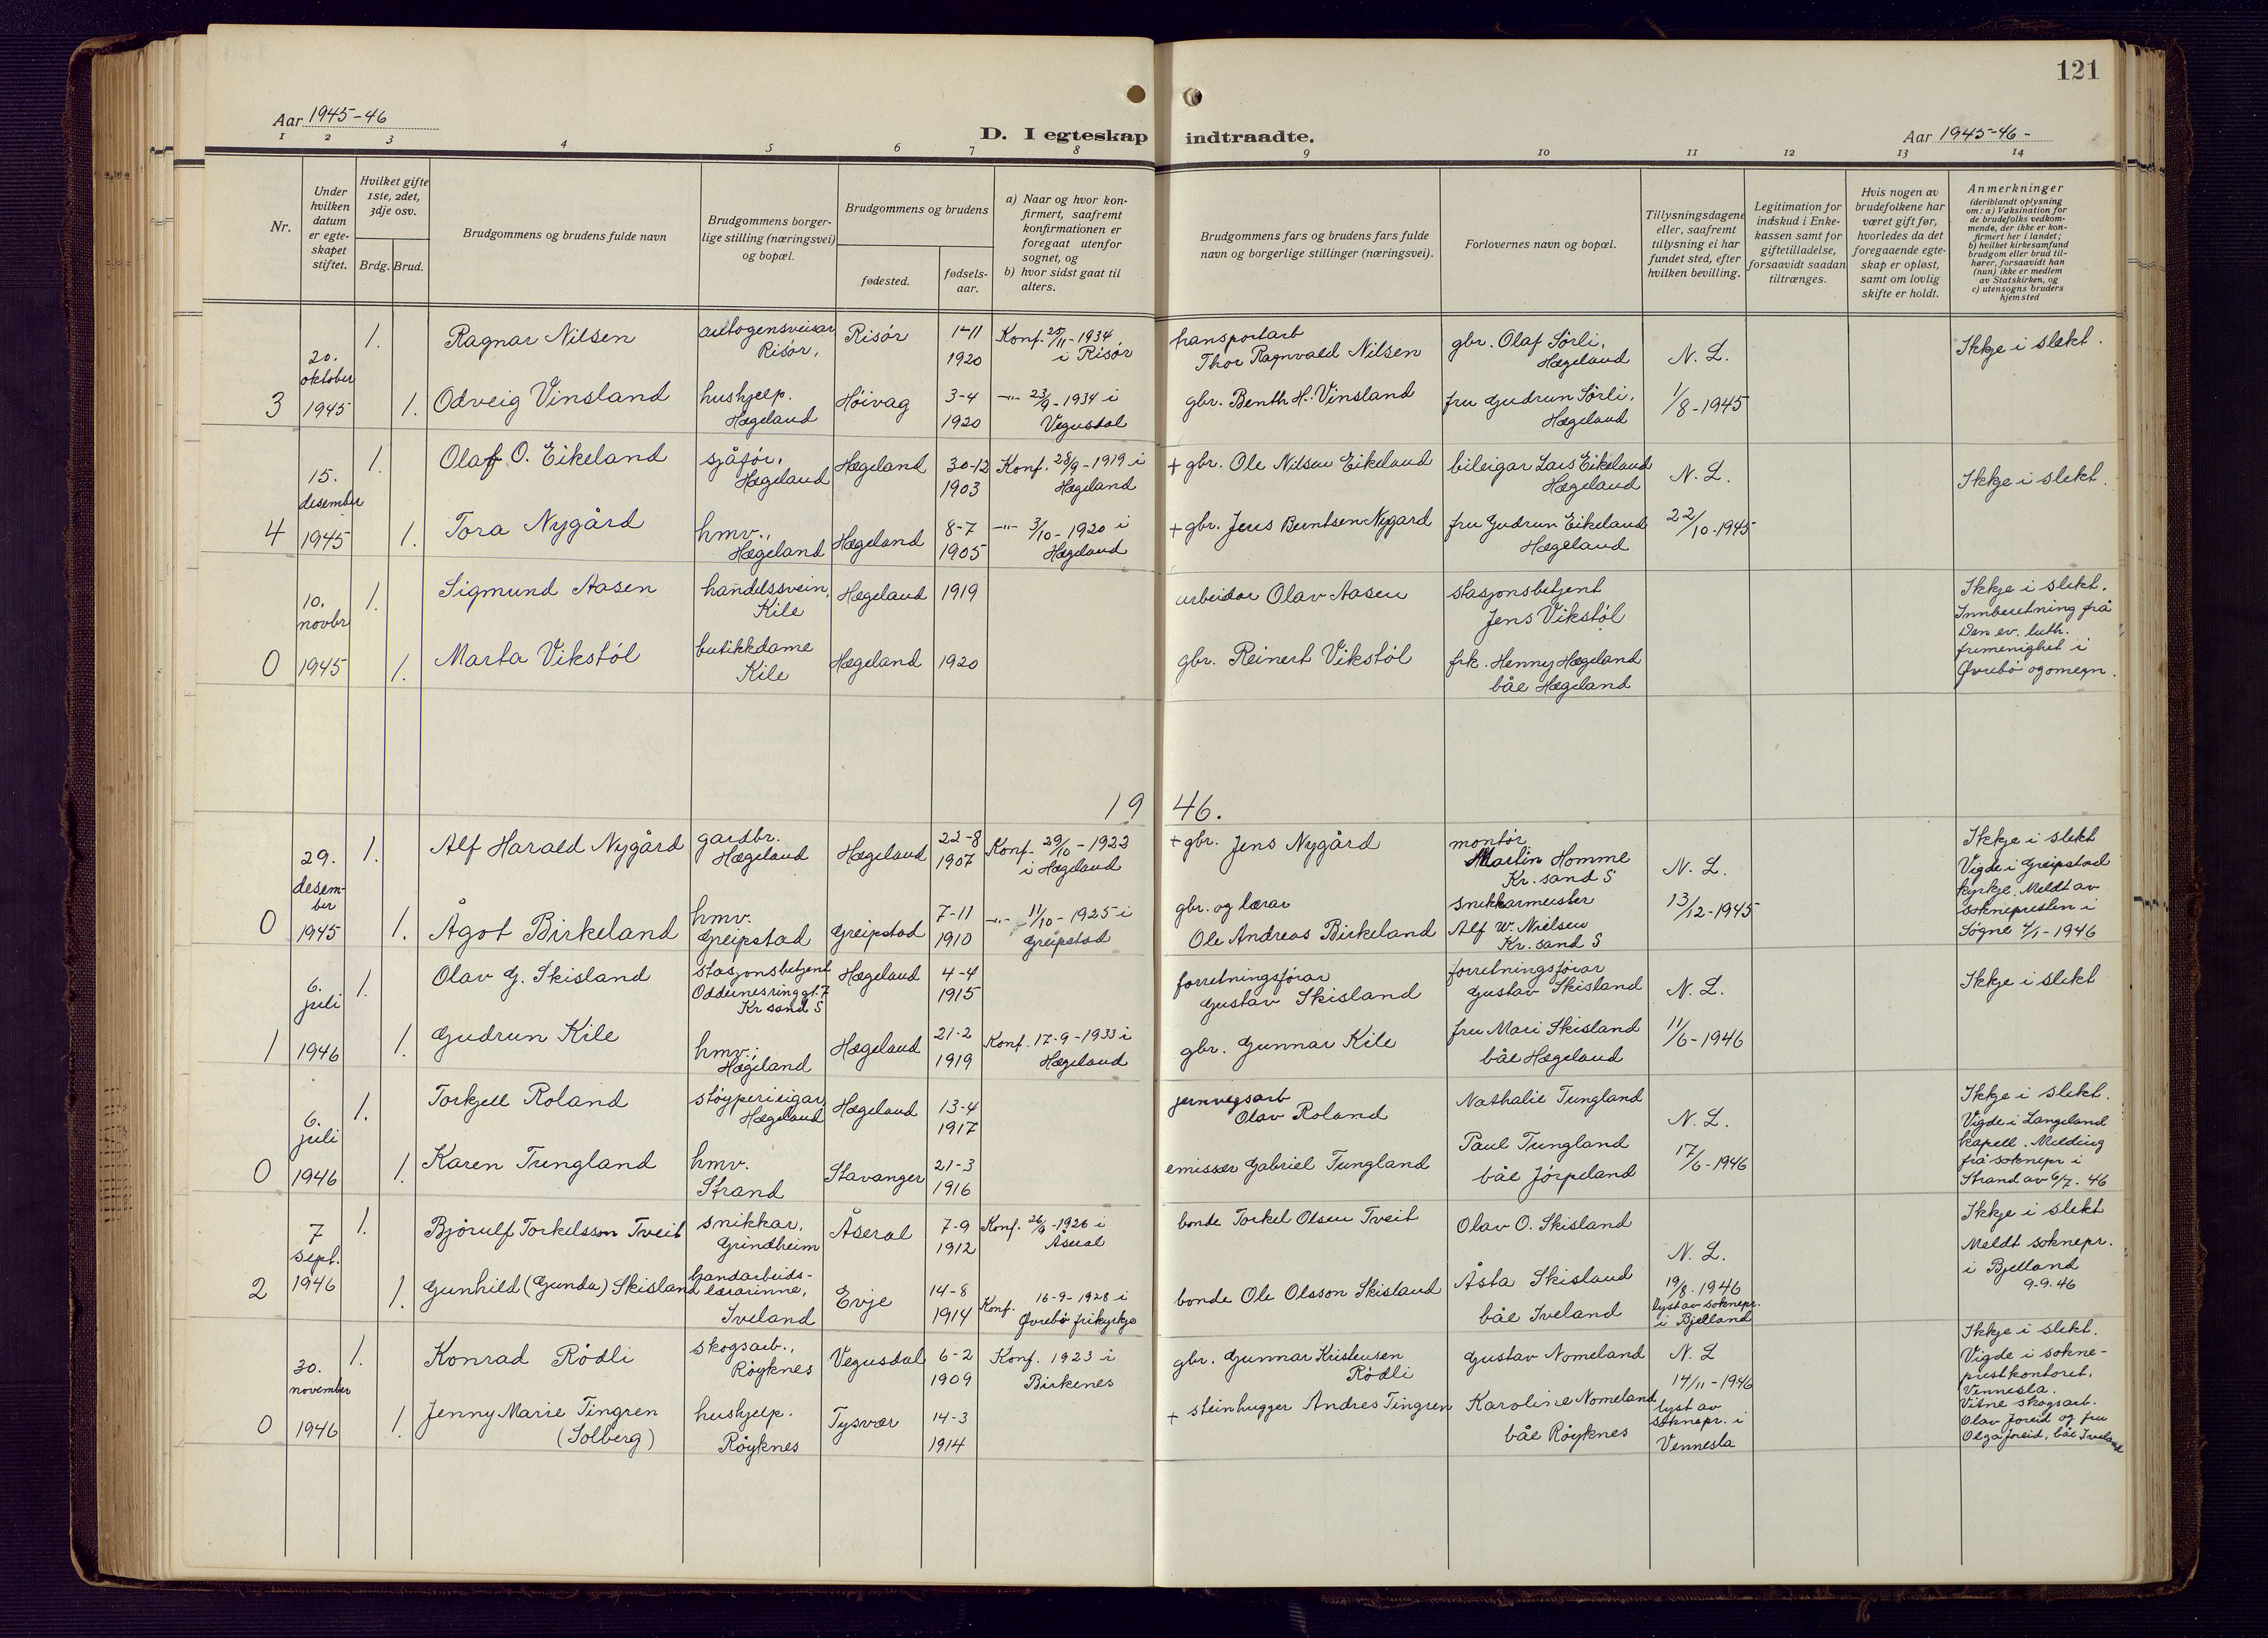 121
Aar 1945-46
D. I egteskap indtraadte.
Aar 1945-46-
1 2 3 4 5 6 7 8 9 10 11 12 13 14
Nr.
Under
hvilken
datum
er egte-
skapet
stiftet.
Hvilket gifte
1ste, 2det,
3dje osv.
Brdg. Brud.
Brudgommens og brudens fulde navn
Brudgommens borger-
lige stilling (næringsvei)
og bopæl.
Brudgommens og brudens
fødested.
fødsels-
aar.
a) Naar og hvor kon-
firmert, saafremt
konfirmationen er
foregaat utenfor
sognet, og
b) hvor sidst gaat til
alters.
Brudgommens fars og brudens fars fulde
navn og borgerlige stillinger (næringsvei).
Forlovernes navn og bopæl.
Tillysningsdagene
eller, saafremt
tillysning ei har
fundet sted, efter
hvilken bevilling.
Legitimation for
indskud i Enke-
kassen samt for
giftetilladelse,
forsaavidt saadan
tiltrænges.
Hvis nogen av
brudefolkene har
været gift før,
hvorledes da det
foregaaende egte-
skap er opløst,
samt om lovlig
skifte er holdt.
Anmerkninger
(deriblandt oplysning
om: a) Vaksination for
de brudefolks vedkom-
mende, der ikke er kon-
firmert her i landet;
b) hvilket kirkesamfund
brudgom eller brud til-
hører, forsaavidt han
(hun) ikke er medlem
av Statskirken, og
c) utensogns bruders
hjemsted
3
20.
oktober
1945
1.
Ragnar Nilsen
autogensveisar
Risør,
Risør
1-11
1920
Konf. 25/11-1934
i Risør
transportarb
Thor Ragnvald Nilsen
gbr. Olaf Sørli,
Hægeland
N. L.
Ikkje i slekt.
1.
Odveig Vinsland
hushjelp.
Hægeland
Høivag
3-4
1920
-"- 23/9-1934 i
Vegusdal
gbr. Benth H. Vinsland
fru Gudrun Sørli,
Hægeland
1/8-1945
4
15.
desember
1945
1.
Olaf O. Eikeland
sjåfør,
Hægeland
Hægeland
30-12
1903
Konf. 28/9-1919 i
Hægeland
+ gbr. Ole Nilsen Eikeland
bileigar Lars Eikeland
Hægeland
N. L.
Ikkje i slekt.
1.
Tora Nygård
hmv.,
Hægeland
Hægeland
8-7
1905
-"- 3/10-1920 i
Hægeland
+ gbr. Jens Berntsen Nygard
fru Gudrun Eikeland
Hægeland
22/10-1945
0
10.
novbr
1945
1.
Sigmund Aasen
handelssvein,
Kile
Hægeland
1919
arbeidar Olav Aasen
stasjonsbetjent
Jens Vikstøl
Ikkje i slekt.
Innberetning frå
Den ev. luth.
frimenighet i
Øvrebø og omegn.
1.
Marta Vikstøl
butikkdame
Kile
Hægeland
1920
gbr. Reinert Vikstøl
frk. Henny Hægeland
båe Hægeland
1946.
0
29.
desem-
ber
1945
1.
Alf Harald Nygård
gardbr.
Hægeland
Hægeland
22-8
1907
Konf. 29/10-1922
i Hægeland
+ gbr. Jens Nygård
montør
Martin Homme
Kr. sand S
N. L.
Ikkje i slekt
Vigde i Greipstad
kyrkje. Meldt av
soknepresten i
Søgne 4/1-1946
1.
Ågot Birkeland
hmv.
Greipstad
Greipstad
7-11
1910
-"- 11/10-1925 i
Greipstad
gbr. og lærar
Ole Andreas Birkeland
snekkarmeister
Alf W. Nielsen
Kr. sand S
13/12-1945
1
6.
juli
1946
1.
Olav G. Skisland
stasjonsbetjent
Oddernesringgt. 7
Kr sand S
Hægeland
4-4
1915
forretningsførar
Gustav Skisland
forretningsførar
Gustav Skisland
N. L.
Ikkje i slekt
1.
Gudrun Kile
hmv.;
Hægeland
Hægeland
21-2
1919
Konf. 17-9-1933 i
Hægeland
gbr. Gunnar Kile
fru Mari Skisland
båe Hægeland
11/6-1946
0
6.
juli
1946
1.
Torkjell Roland
støyperieigar
Hægeland
Hægeland
13-4
1917
jernvegsarb
Olav Roland
Nathalie Tungland
N. L.
Ikkje i slekt.
Vigde i Langeland
kapell. Melding
frå soknepr i
Strand av 6/7. 46
1.
Karen Tungland
hmv.
Strand
Stavanger
21-3
1916
emissær Gabriel Tungland
Paul Tungland
båe Jørpeland
17/6-1946
2
7
sept.
1946
1.
Bjørulf Torkelsson Tveit
snikkar,
Grindheim
Åseral
7-9
1912
Konf. 26/9-1926 i
Åseral
bonde Torkel Olsen Tveit
Olav O. Skisland
N. L.
Ikkje i slekt
Meldt soknepr.
i Bjelland
9-9.46
1.
Gunhild (Gunda) Skisland
handarbeids-
lærarinne,
Iveland
Evje
14-8
1914
Konf. 16-9-1928 i
Øvrebø frikyrkje
bonde Ole Olsson Skisland
Åsta Skisland
båe Iveland
19/8.1946
lyst av soknepr.
i Bjelland
0
30.
november
1946
1.
Konrad Rødli
skogsarb.,
Røyknes
Vegusdal
6-2
1909
Konf. 1923 i
Birkenes
gbr. Gunnar Kristensen
Rødli
Gustav Nomeland
N. L
Ikkje i slekt.
Vigde i sokne-
prestkontoret,
Vennesla.
Vitne skogsarb.
Olav Joreid og fru
Olga Joreid, båe Iveland
1.
Jenny Marie Tingren
(Solberg)
hushjelp.
Røyknes
Tysvær
14-3
1914
+ steinhugger Andres Tingren
Karoline Nomeland
båe Røyknes
14/11-1946
lyst av
soknepr. i
Vennesla